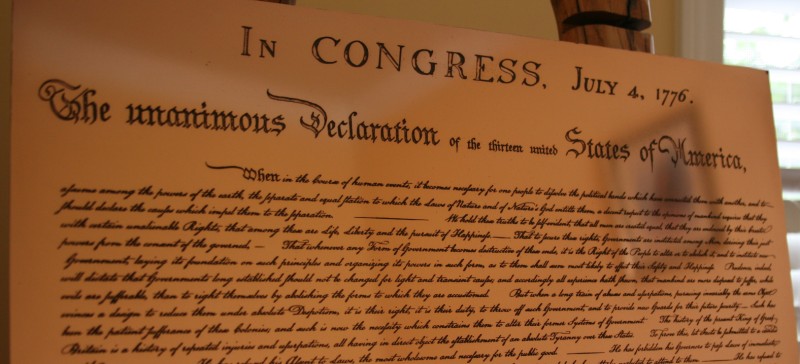 In CONGRESS, July 4, 1776.
The unanimous Declaration of the thirteen united States of America,
When in the Course of human events, it becomes necessary for one people to dissolve the political bands which have connected them with another, and to
assume among the powers of the earth, the separate and equal station to which the Laws of Nature and of Nature's God entitle them, a decent respect to the opinions of mankind requires that they
should declare the causes which impel them to the separation. We hold these truths to be self-evident, that all men are created equal, that they are endowed by their Creator
with certain unalienable Rights, that among these are Life, Liberty and the pursuit of Happiness.— That to secure these rights, Governments are instituted among Men, deriving their just
powers from the consent of the governed,— That whenever any Form of Government becomes destructive of these ends, it is the Right of the People to alter or to abolish it, and to institute new
Government, laying its foundation on such principles and organizing its powers in such form, as to them shall seem most likely to effect their Safety and Happiness. Prudence, indeed,
will dictate that Governments long established should not be changed for light and transient causes; and accordingly all experience hath shewn, that mankind are more disposed to suffer, while
evils are sufferable, than to right themselves by abolishing the forms to which they are accustomed. But when a long train of abuses and usurpations, pursuing invariably the same Object
evinces a design to reduce them under absolute Despotism, it is their right, it is their duty, to throw off such Government, and to provide new Guards for their future security.— Such has
been the patient sufferance of these Colonies; and such is now the necessity which constrains them to alter their former Systems of Government. The history of the present King of Great
Britain is a history of repeated injuries and usurpations, all having in direct object the establishment of an absolute Tyranny over these States. To prove this, let Facts be submitted to a candid
He has refused his Assent to Laws, the most wholesome and necessary for the public good. He has forbidden his Governors to pass Laws of immediate